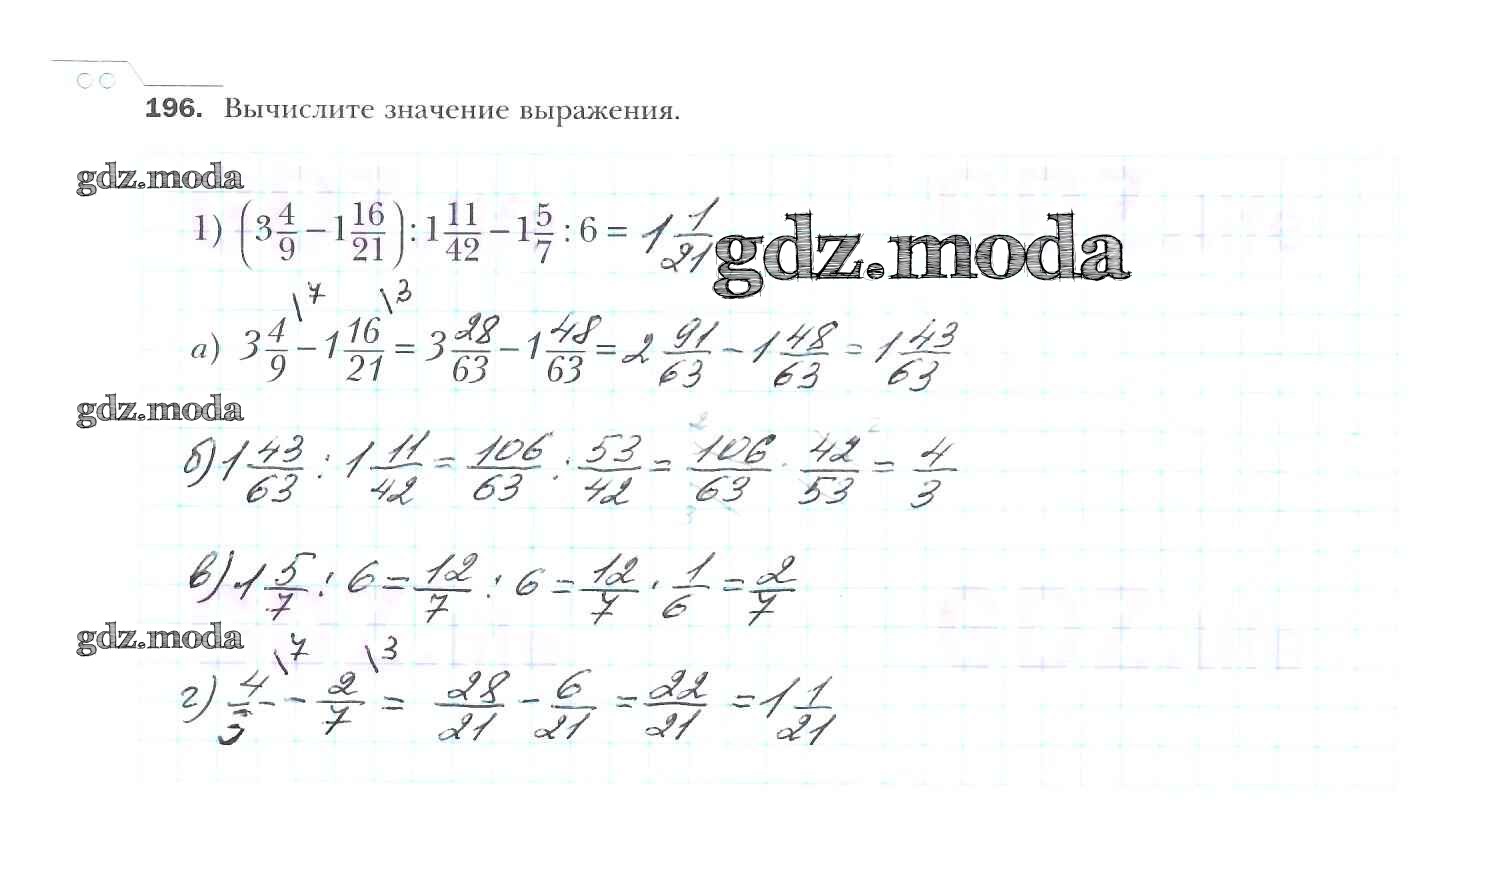 196. Вычислите значение выражения.
gdz.moda
1) (3 4/9 − 1 16/21) : 1 11/42 − 1 5/7 : 6 = 1 1/21
gdz.moda
\7 \3
а) 3 4/9 − 1 16/21 = 3 28/63 − 1 48/63 = 2 91/63 − 1 48/63 = 1 43/63
gdz.moda
б) 1 43/63 : 1 11/42 = 106/63 : 53/42 = 106/63 · 42/53 = 4/3
в) 1 5/7 : 6 = 12/7 : 6 = 12/7 · 1/6 = 2/7
gdz.moda
\7 \3
г) 4/3 − 2/7 = 28/21 − 6/21 = 22/21 = 1 1/21